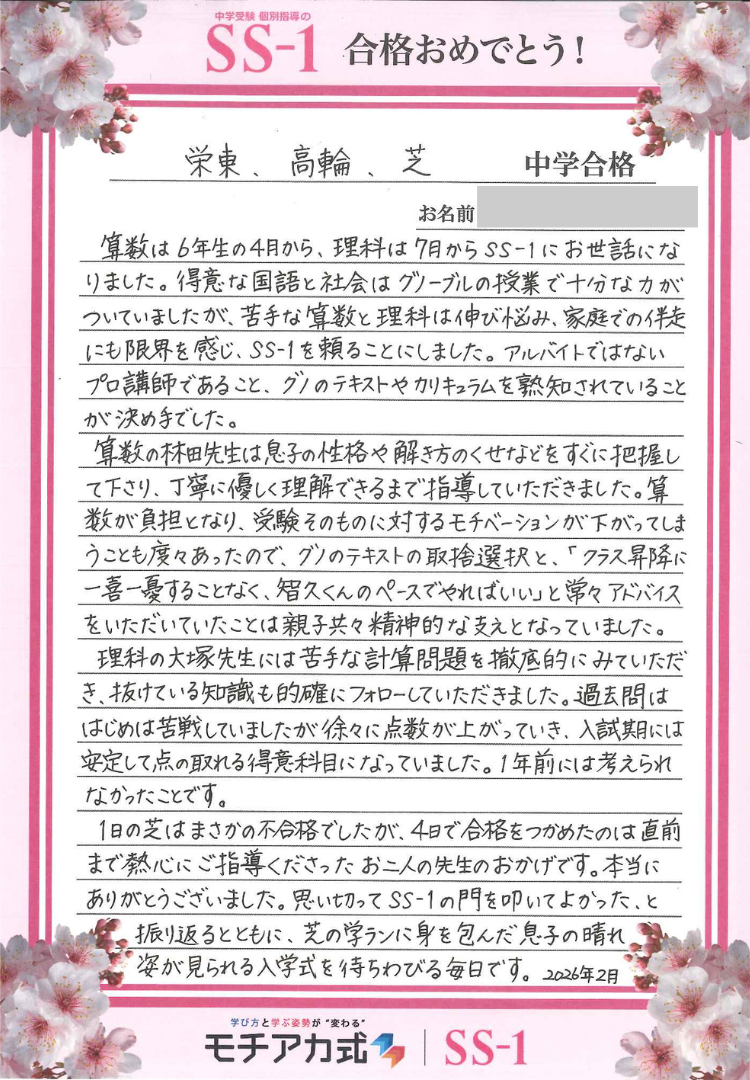 中学受験 個別指導の
SS-1 合格おめでとう!
栄東、高輪、芝 中学合格
お名前
算数は6年生の4月から、理科は7月からSS-1にお世話にな
りました。得意な国語と社会はグノーブルの授業で十分な力が
ついていましたが、苦手な算数と理科は伸び悩み、家庭での伴走
にも限界を感じ、SS-1を頼ることにしました。アルバイトではない
プロ講師であること、グノのテキストやカリキュラムを熟知されていること
が決め手でした。
算数の林田先生は息子の性格や解き方のくせなどをすぐに把握し
て下さり、丁寧に優しく理解できるまで指導していただきました。算
数が負担となり、受験そのものに対するモチベーションが下がってしま
うことも度々あったので、グノのテキストの取捨選択と、「クラス昇降に
一喜一憂することなく、智久くんのペースでやればいい」と常々アドバイス
をいただいていたことは親子共々精神的な支えとなっていました。
理科の大塚先生には苦手な計算問題を徹底的にみていただ
き、抜けている知識も的確にフォローしていただきました。過去問は
はじめは苦戦していましたが徐々に点数が上がっていき、入試期には
安定して点の取れる得意科目になっていました。1年前には考えられ
なかったことです。
1日の芝はまさかの不合格でしたが、4日で合格をつかめたのは直前
まで熱心にご指導くださったお二人の先生のおかげです。本当に
ありがとうございました。思い切ってSS-1の門を叩いてよかった、と
振り返るとともに、芝の学ランに身を包んだ息子の晴れ
姿が見られる入学式を待ちわびる毎日です。2026年2月
学び方と学ぶ姿勢が"変わる"
モチアカ式 SS-1